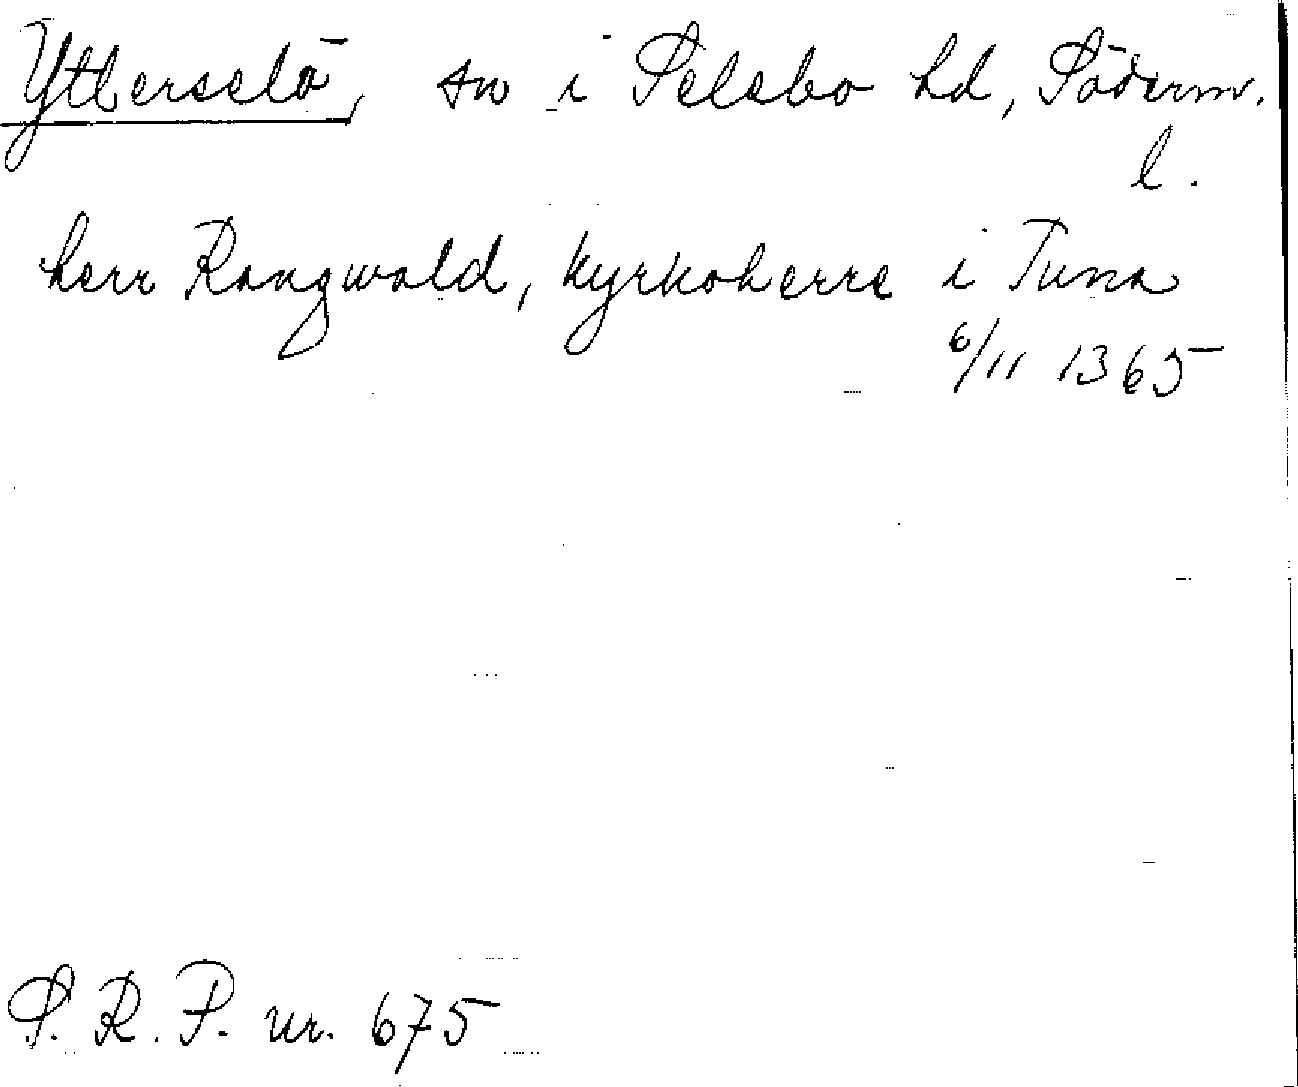 Ytterselö, sn i Selebo hd, Söderm.
l.
herr Rangwald, kyrkoherre i Tuna
6/11 1365
S. R. P. nr. 675